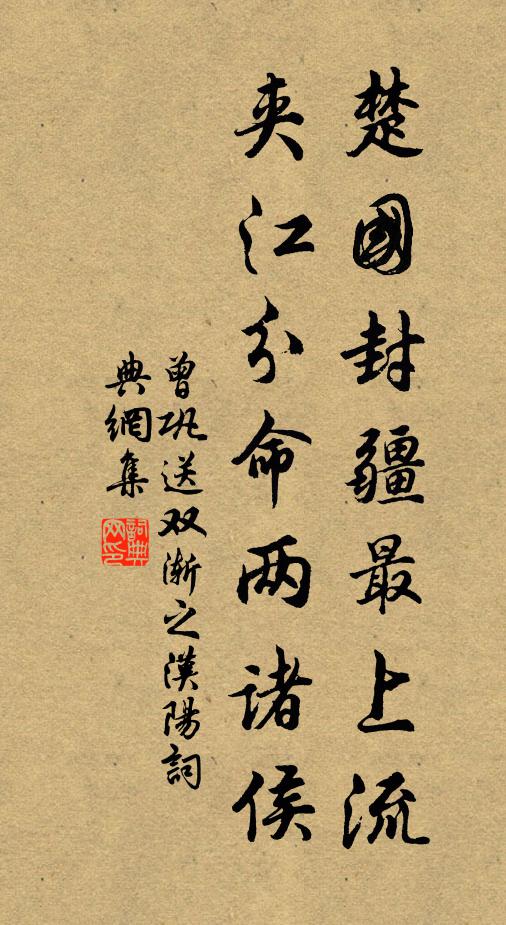 楚國封疆最上流
夹江分命两诸侯
曾巩送双渐之漢陽詞
典網集
詞典网印